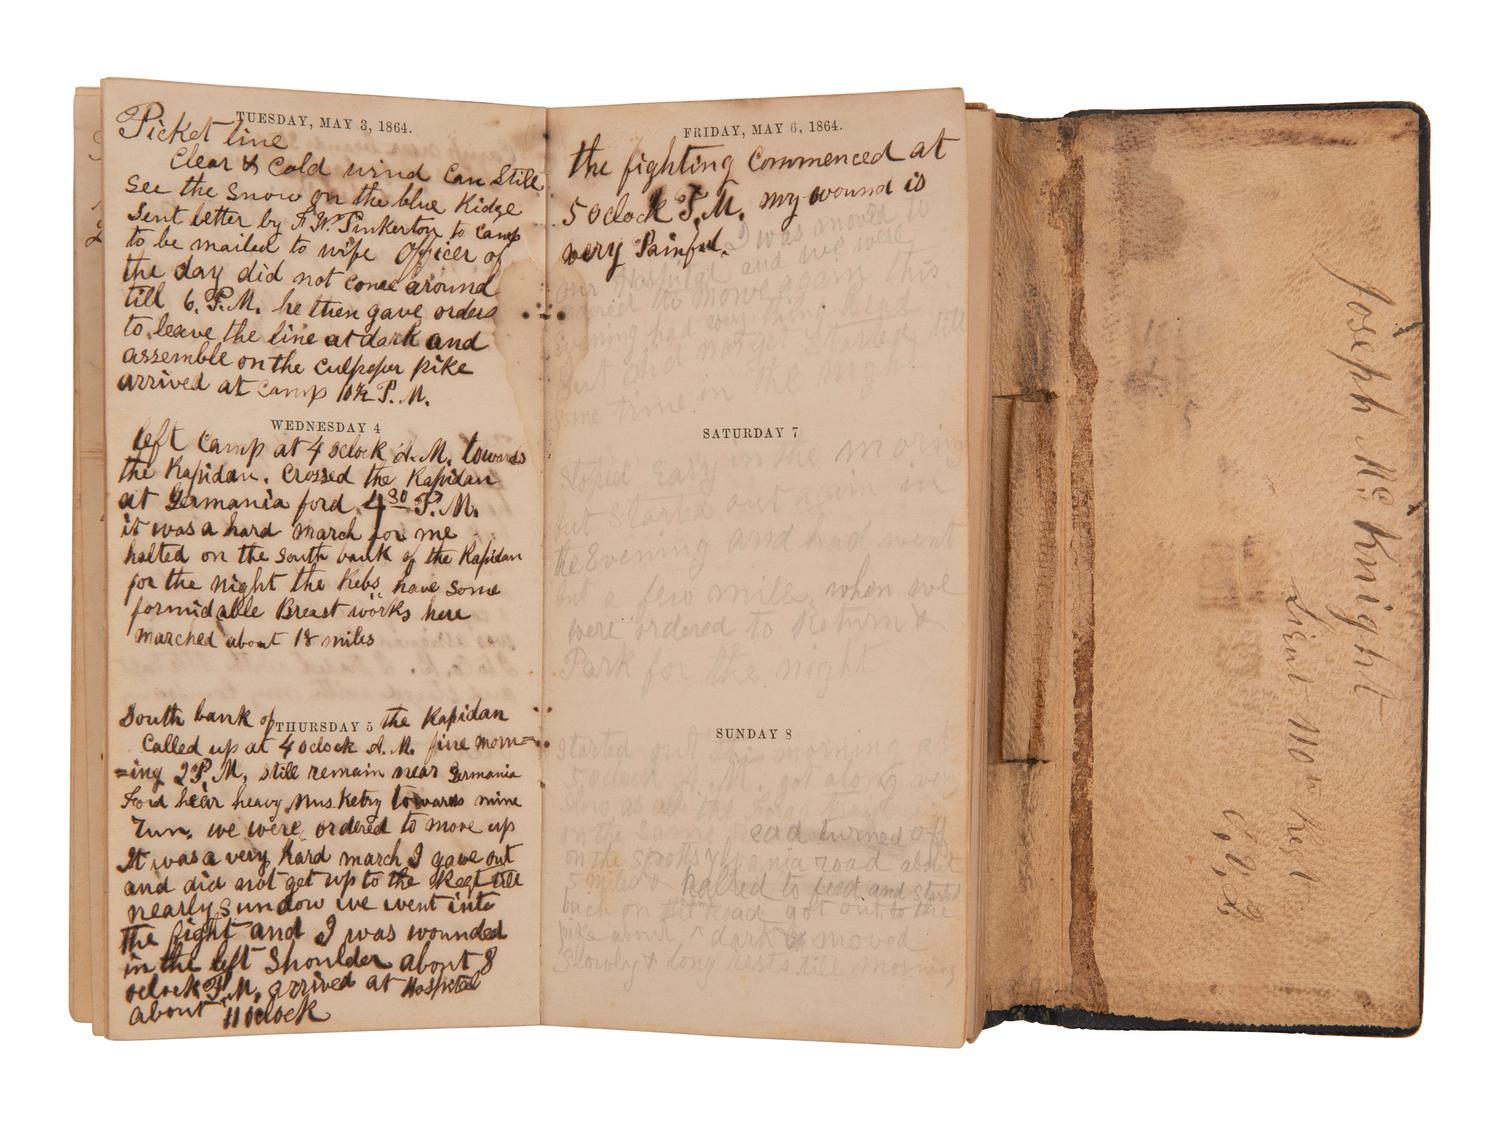 TUESDAY, MAY 3, 1864.
Picket line
Clear & Cold wind Can Still
see the snow on the blue Ridge
Sent letter by F. W. Pinkerton to camp
to be mailed to wife Officer of
the day did not come around
till 6. P.M. he then gave orders
to leave the line at dark and
assemble on the Culpeper pike
arrived at camp 10½ P.M.
WEDNESDAY 4
left Camp at 4 oclock A.M. towards
the Rapidan. Crossed the Rapidan
at Germania ford 4 30 P.M.
it was a hard march for me
halted on the south bank of the Rapidan
for the night the Rebs have some
formidable Breast works here
marched about 18 miles
THURSDAY 5
South bank of the Rapidan
Called up at 4 oclock A.M. fine morn=
=ing 2 P.M, still remain near Germania
Ford hear heavy Musketry towards mine
Run, we were ordered to move up
It was a very hard march I gave out
and did not get up to the Regt till
nearly sundow we went into
the fight and I was wounded
in the left Shoulder about 8
oclock P.M. arrived at Hospital
about 11 oclock
FRIDAY, MAY 6, 1864.
the fighting Commenced at
5 oclock P.M. my wound is
very Painful. I was moved to
our Hospital and we were
ordered to move again this
evening had every thing
but did not start till
some time in the night
SATURDAY 7
stoped Early in the morning
but Started out again in
the Evening and had went
but a few mile, when we
were ordered to Return &
Park for the night
SUNDAY 8
Started out this morning at
5 oclock A.M. got along very
slow as all the
on the same road turned off
on the Spottsylvania road about
5 miles & halted to feed and started
back on the Road got out to the
pike about dark & moved
Slowly & long rests till morning
Joseph McKnight
Lieut